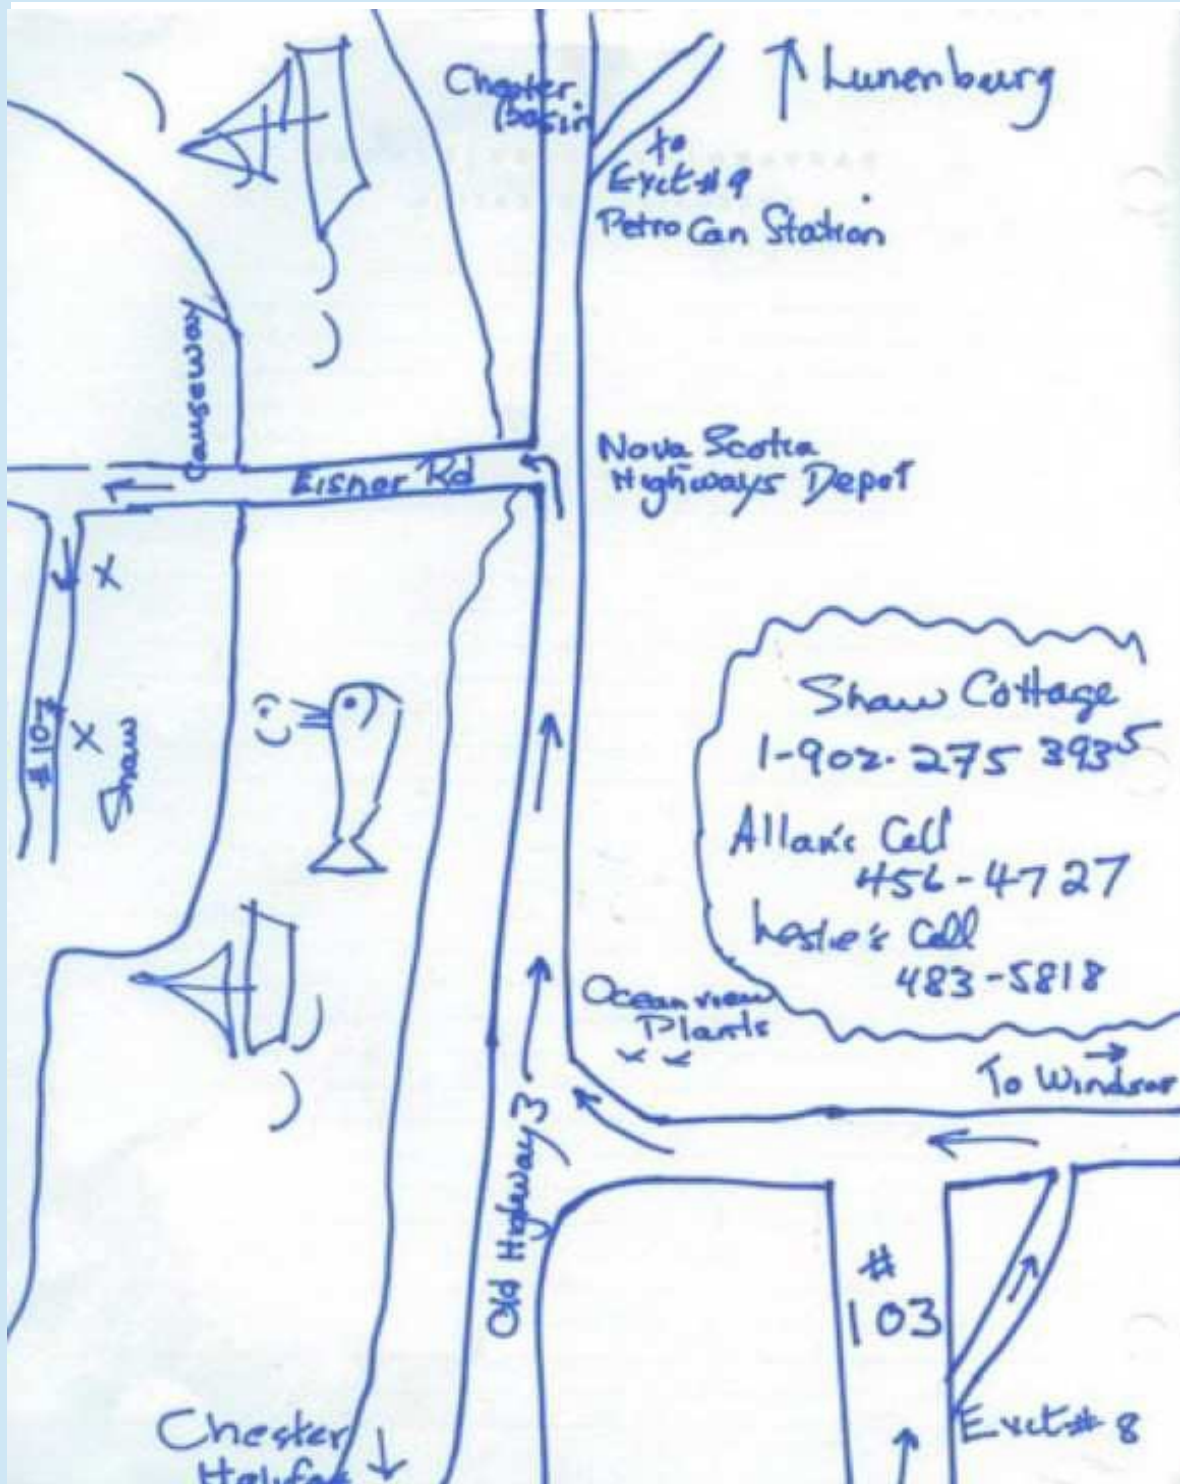 Chester
Basin
↑ Lunenburg
to
Exit #9
Petro Can Station
Causeway
Eisnor Rd
Nova Scotia
Highways Depot
X
#107
X
Shaw
Shaw Cottage
1-902-275 3935
Allan's Cell
456-4727
Leslie's Cell
483-5818
Ocean view
Plants
To Windsor
Old Highway 3
#
103
Exit #8
Chester
Halifax